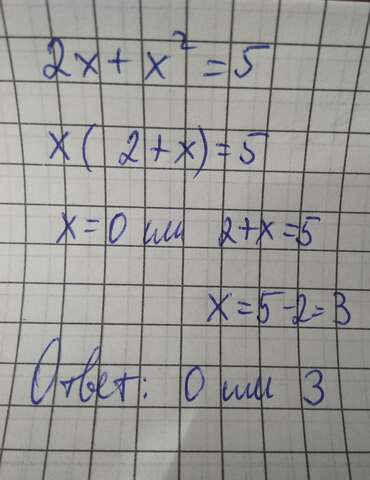 2x + x² = 5
x( 2+x) = 5
x = 0 или 2+x=5
x = 5-2=3
Ответ: 0 или 3